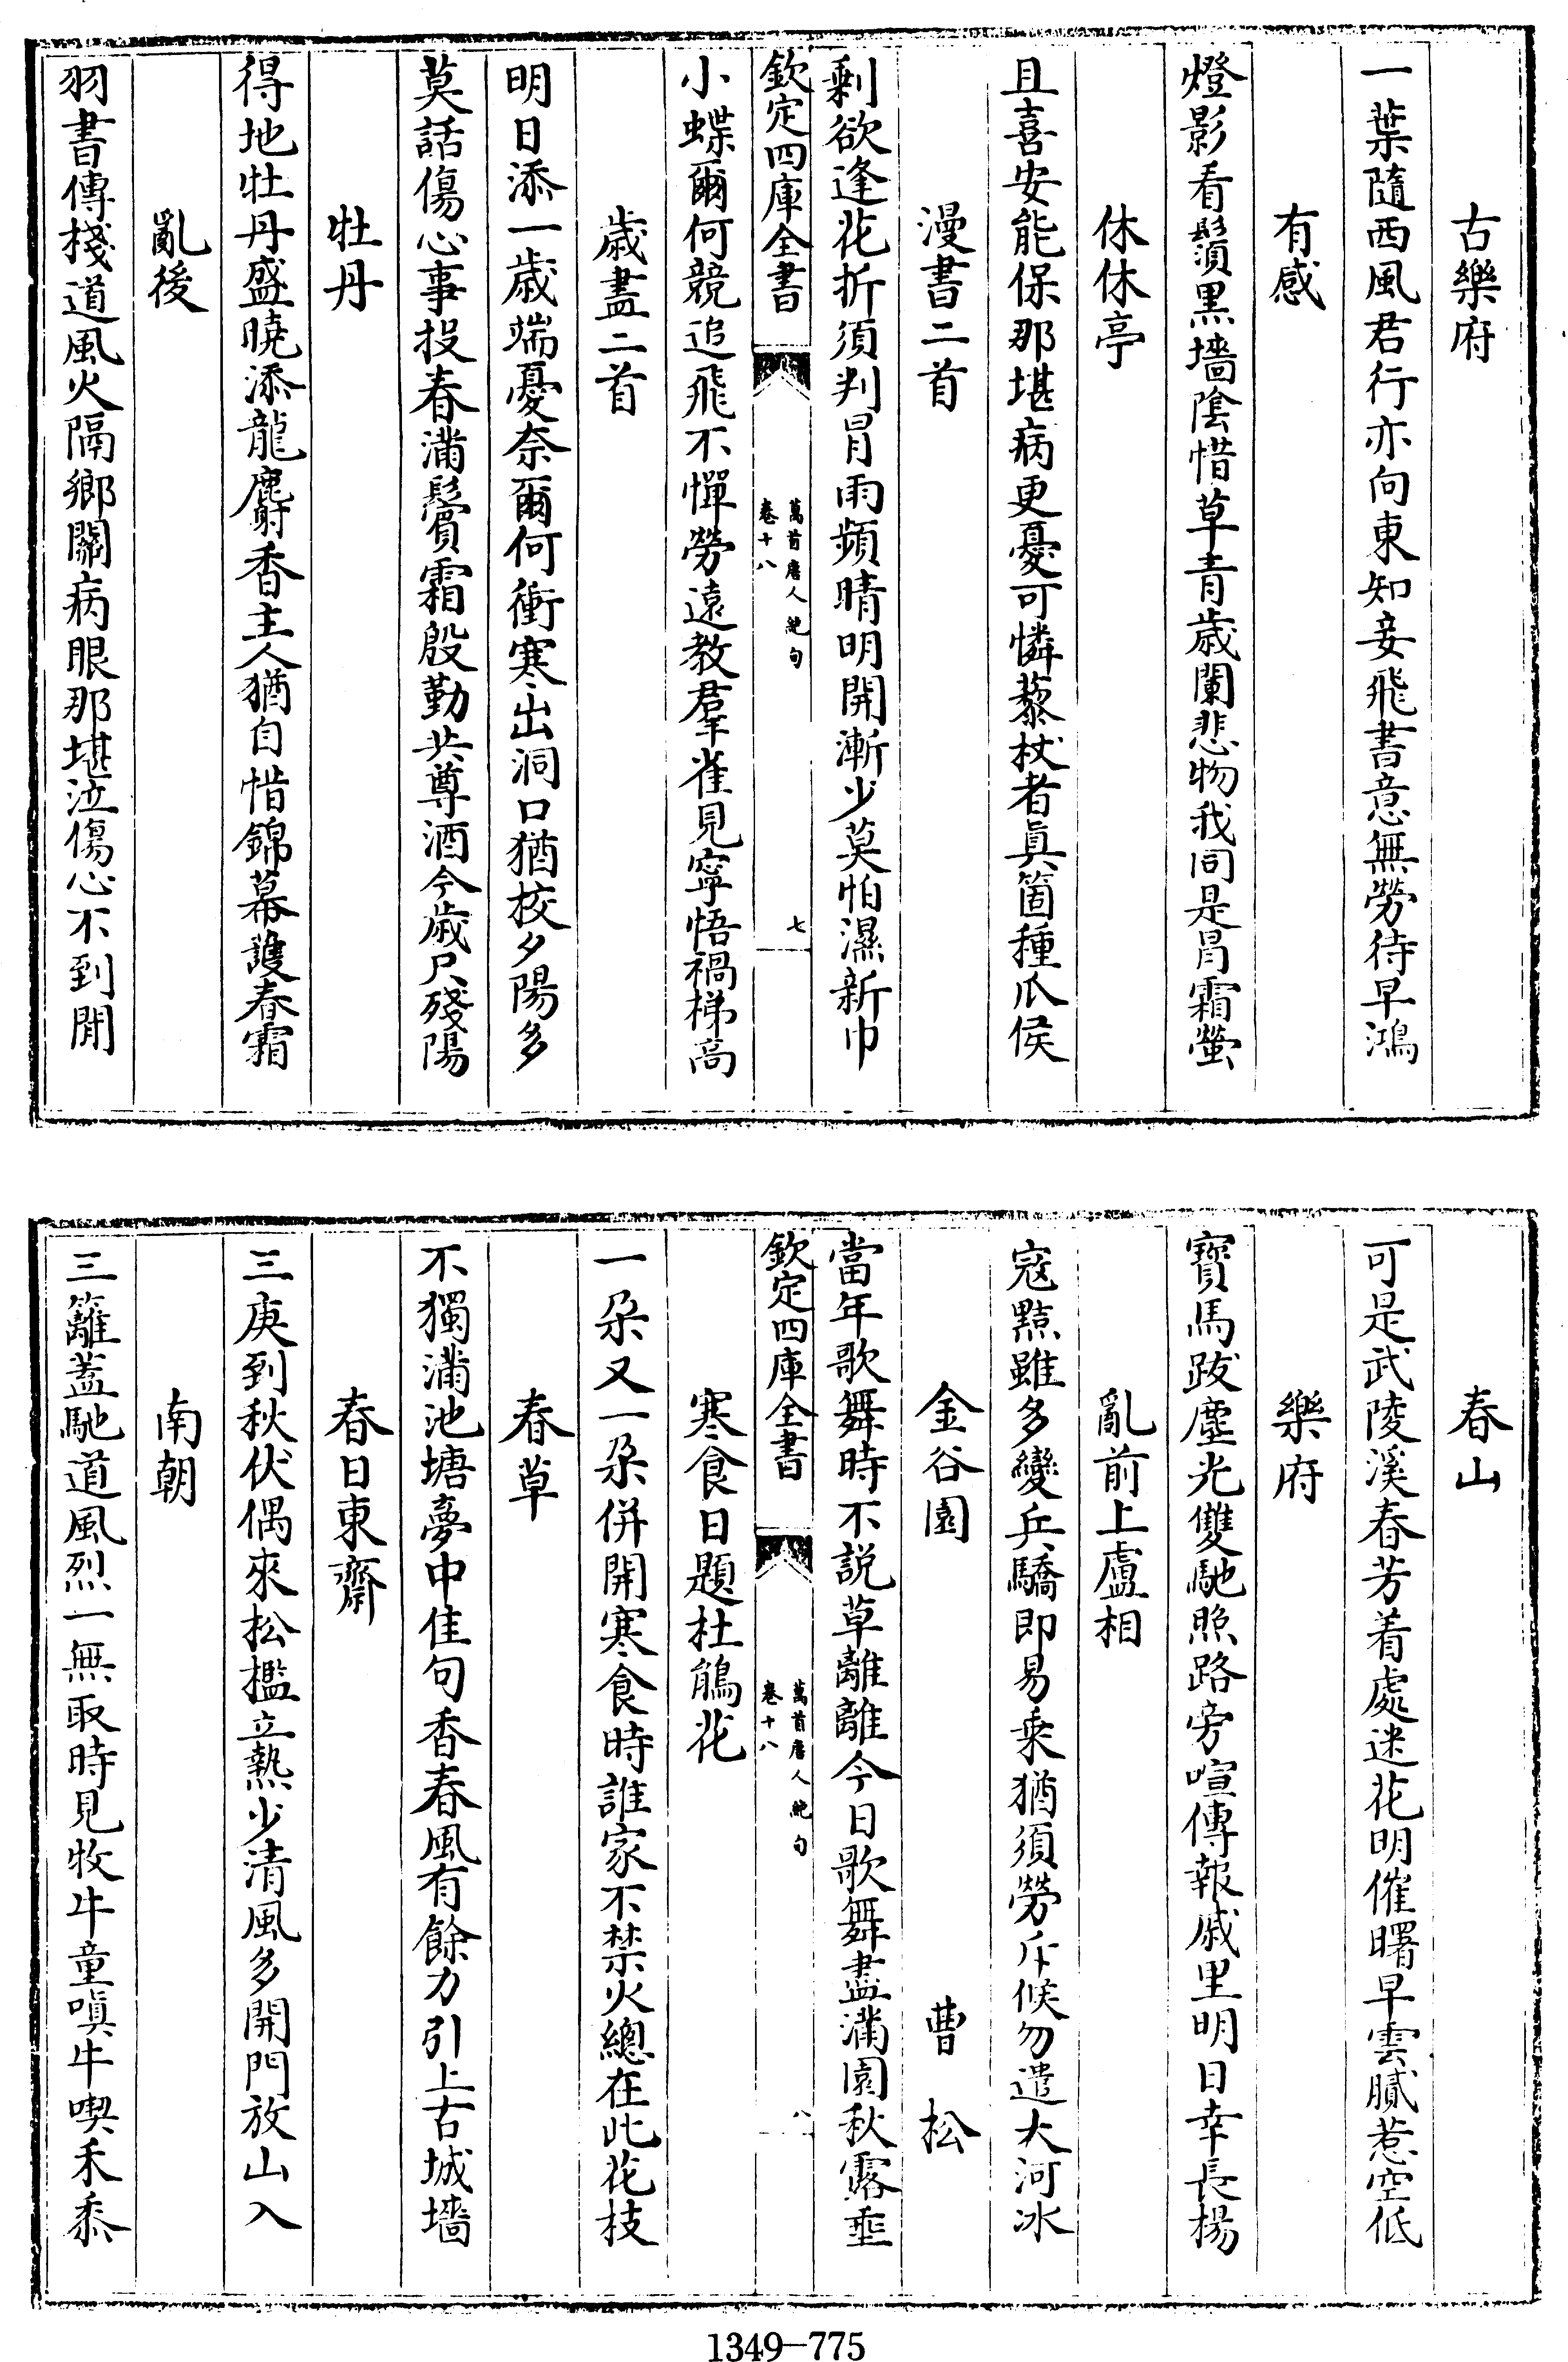 古樂府
一葉隨西風君行亦向東知妾飛書意無勞待早鴻
有感
燈影看鬚黑墻陰惜草青歲闌悲物我同是冒霜螢
休休亭
且喜安能保那堪病更憂可憐藜杖者真箇種瓜侯
漫書二首
剩欲逢花折須判冒雨頻晴明開漸少莫怕濕新巾
欽定四庫全書
萬首唐人絶句
卷十八
七
小蝶爾何競追飛不憚勞遠教羣雀見寧悟禍梯高
歲盡二首
明日添一歲端憂奈爾何衝寒出洞口猶校夕陽多
莫話傷心事投春滿鬢霜殷勤共尊酒今歲只殘陽
牡丹
得地牡丹盛曉添龍麝香主人猶自惜錦幕護春霜
亂後
羽書傳棧道風火隔鄉關病眼那堪泣傷心不到閒
春山
可是武陵溪春芳着處迷花明催曙早雲膩惹空低
樂府
寶馬跋塵光雙馳照路旁喧傳報戚里明日幸長楊
亂前上盧相
寇黠雖多變兵驕即易乘猶須勞斥候勿遣大河冰
金谷園 曹松
當年歌舞時不説草離離今日歌舞盡滿園秋露垂
欽定四庫全書
萬首唐人絶句
卷十八
八
寒食日題杜鵑花
一朶又一朶併開寒食時誰家不禁火總在此花枝
春草
不獨滿池塘夢中佳句香春風有餘力引上古城墻
春日東齋
三庚到秋伏偶來松檻立熱少清風多開門放山入
南朝
三籬蓋馳道風烈一無取時見牧牛童嗔牛喫禾黍
1349-775